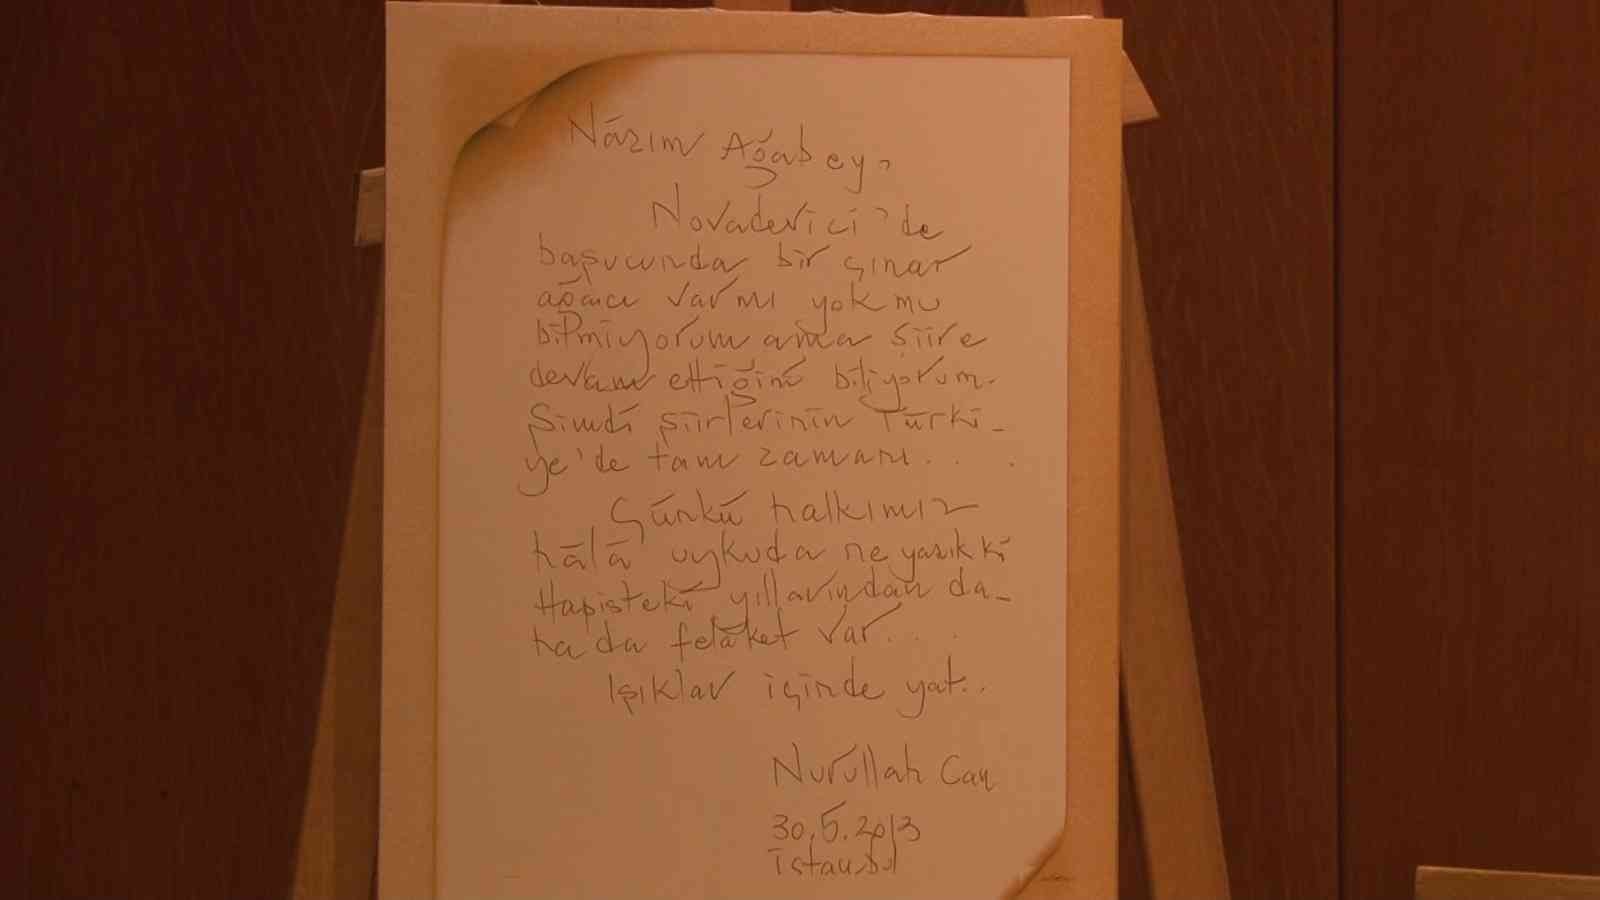 Nâzım Ağabey,
Novadeviçi'de
başucunda bir çınar
ağacı var mı yok mu
bilmiyorum ama şiire
devam ettiğini biliyorum.
Şimdi şiirlerinin Türki-
ye'de tam zamanı . . .
Çünkü halkımız
hâlâ uykuda ne yazık ki
Hapisteki yıllarından da-
ha da felâket var. . .
Işıklar içinde yat..
Nurullah Can
30.5.2013
İstanbul